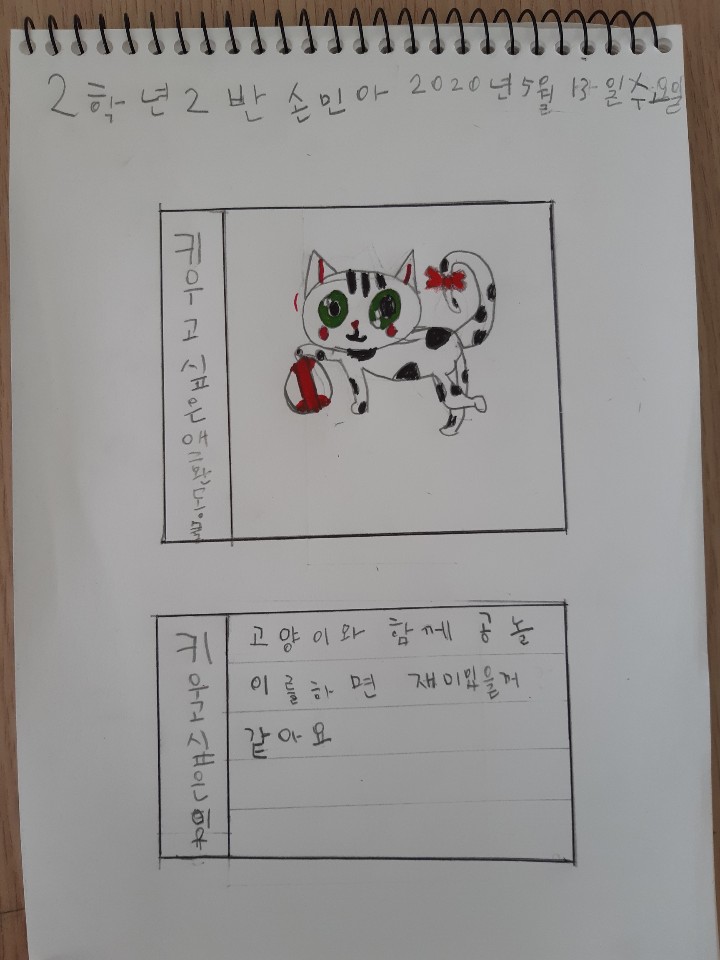 2학년2반 손민아 2020년5월 13일수요일
키우고 싶은 애완동물
키우고싶은
고양이와 함께 공놀
이를하면 재미있을거
같아요